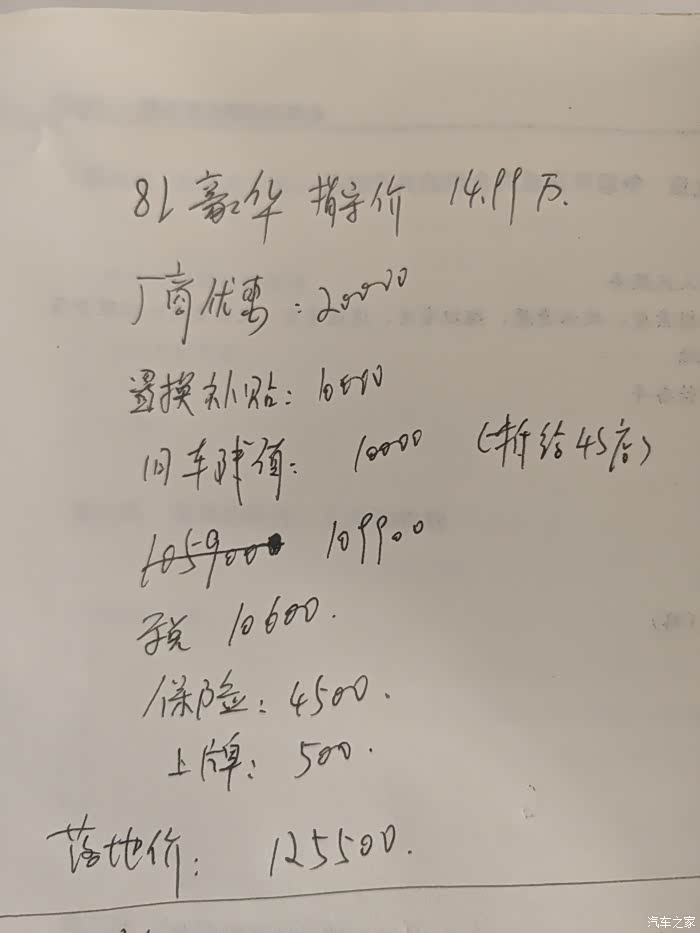 81豪华 指导价 14.99万.
厂商优惠：20000
置换补贴：10000
旧车残值：10000 （拆给4S店）
105900 109900
税 10600.
保险：4500.
上牌：500.
落地价：125500.
汽车之家